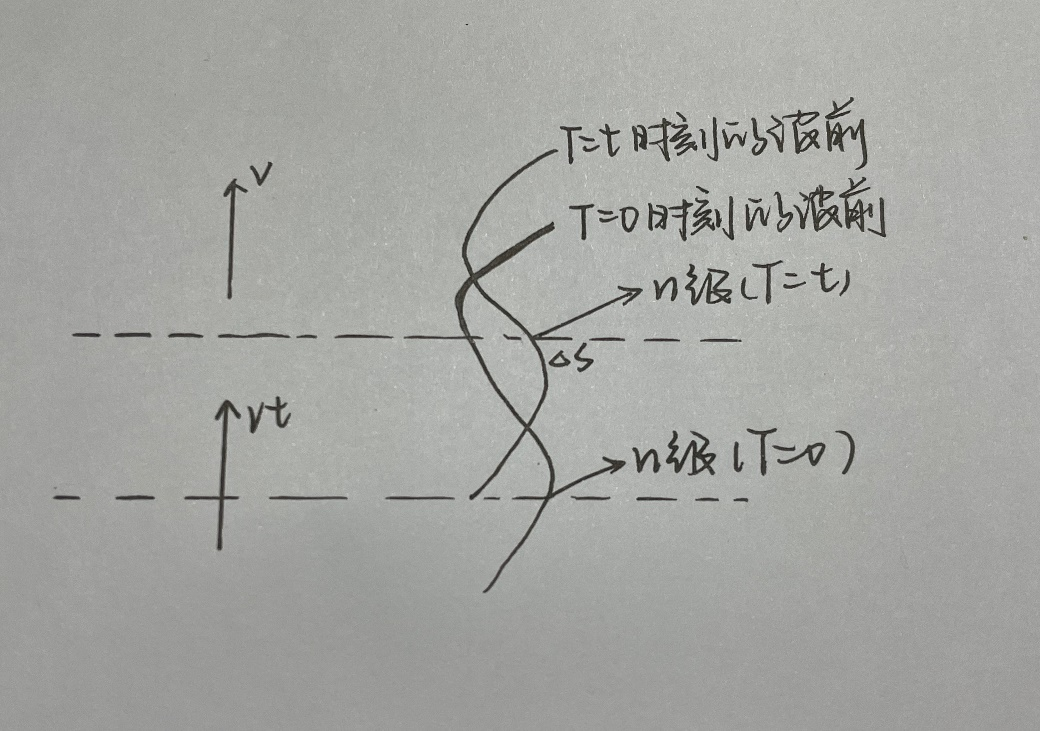 T=t时刻的波前
V
T=0时刻的波前
n级(T=t)
ΔS
Vt
n级(T=0)